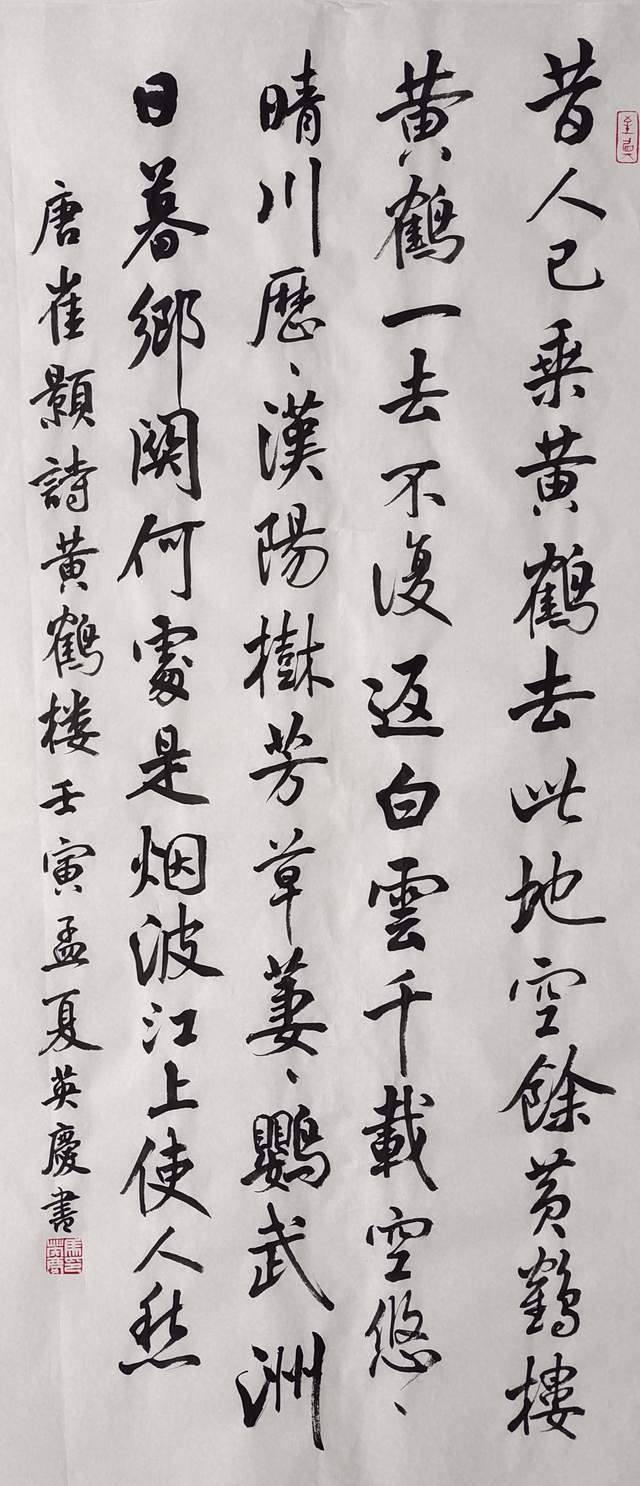 昔人已乘黄鶴去此地空餘黄鶴樓
黄鶴一去不復返白雲千載空悠、
晴川歷、漢陽樹芳草萋、鸚武洲
日暮鄉關何處是烟波江上使人愁
唐崔顥詩黄鶴楼壬寅孟夏英慶書